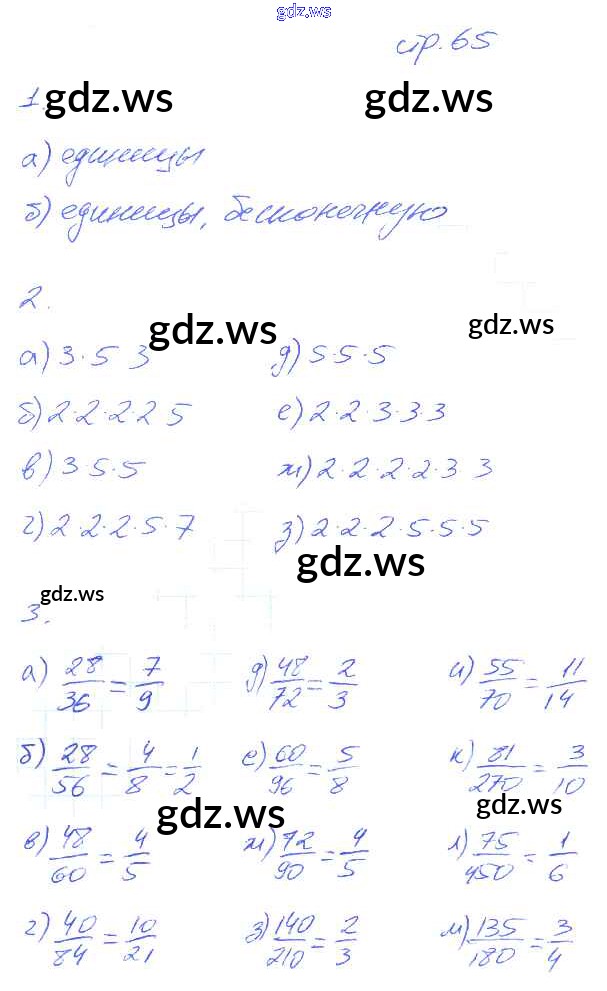 gdz.ws
стр. 65
1. gdz.ws gdz.ws
а) единицы
б) единицы, бесконечную
2.
gdz.ws gdz.ws
а) 3·5 3 д) 5·5·5
б) 2·2·2·2 5 е) 2·2·3·3·3
в) 3·5·5 ж) 2·2·2·2·3 3
г) 2·2·2·5·7 з) 2·2·2·5·5·5
gdz.ws
gdz.ws
3.
а) 28/36 = 7/9 д) 48/72 = 2/3 и) 55/70 = 11/14
б) 28/56 = 4/8 = 1/2 е) 60/96 = 5/8 к) 81/270 = 3/10
gdz.ws gdz.ws
в) 48/60 = 4/5 ж) 72/90 = 4/5 л) 75/450 = 1/6
г) 40/84 = 10/21 з) 140/210 = 2/3 м) 135/180 = 3/4